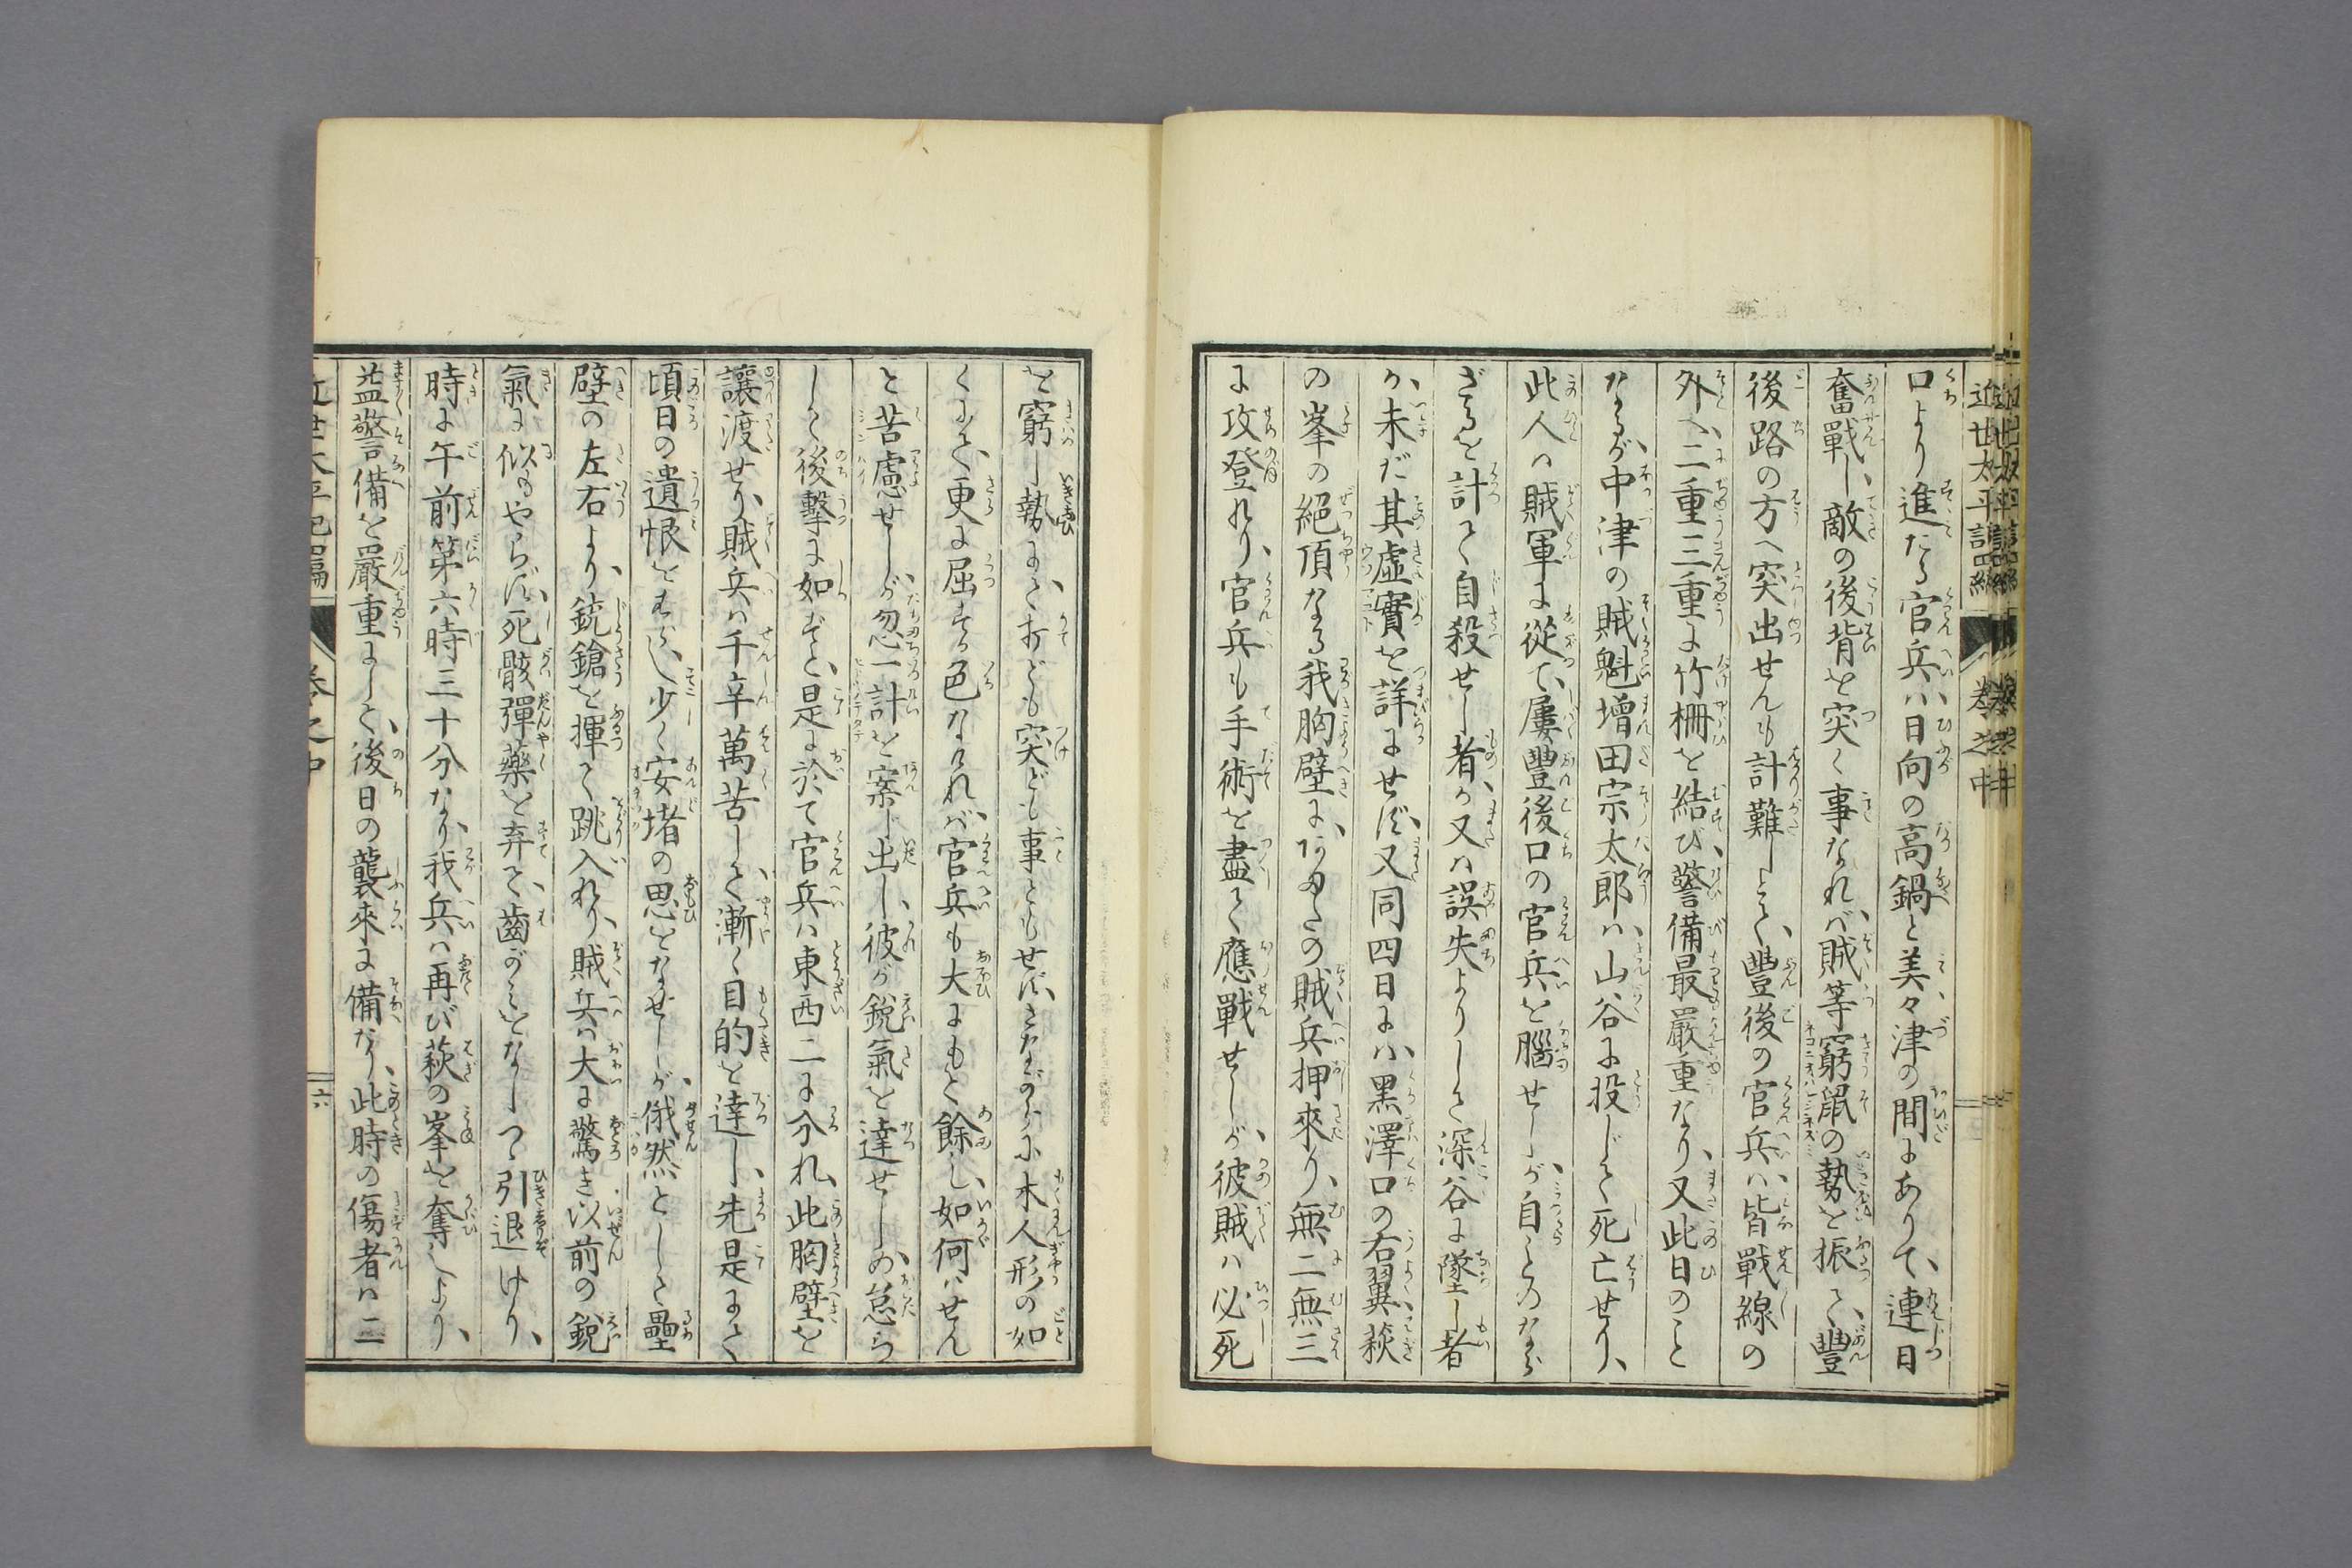 近世太平記四編 巻之中
口より進たる官兵ハ、日向の高鍋と美々津の間にありて、連日
奮戰し、敵の後背を突く事なれバ、賊等窮鼠の勢を振つて、豐
後路の方へ突出せんも計難しとて、豐後の官兵ハ、皆戰線の
外へ、二重三重に竹柵を結び、警備最嚴重なり、又此日のこと
なるが、中津の賊魁增田宗太郎ハ、山谷に投じて死亡せり、
此人ハ賊軍に從て、屢豐後口の官兵を腦せしが、自とのなら
ざるを計て自殺せし者か、又ハ誤失よりして深谷に墜し者
か、未だ其虛實を詳にせず、又同四日にハ、黑澤口の右翼、萩
の峯の絕頂なる我胸壁に、あまたの賊兵押來り、無二無三
に攻登れり、官兵も手術を盡て應戰せしが、彼賊ハ必死
を窮し勢にて、打ども突ども事ともせず、さながら木人形の如
くにて、更に屈する色なけれバ、官兵も大にもて餘し、如何ハせん
と苦慮せしが、忽一計を案じ出し、彼が銳氣を達せしめ、怠ら
して後擊に如ずと、是に於て官兵ハ東西二に分れ、此胸壁を
讓渡せり、賊兵ハ千辛萬苦して、漸く目的を達し、先是にて
頃日の遺恨をはらし、少く安堵の思をなせしが、俄然として壘
壁の左右より、銃鎗を揮て跳入れり、賊兵ハ大に驚き、以前の銳
氣に似もやらず、死骸彈藥を弃て、齒がみをなしつゝ引退けり、
時に午前第六時三十分なり、我兵ハ再び萩の峯を奪ひしより、
益警備を嚴重にして、後日の襲來に備なり、此時の傷者ハ二
近世太平記四編 巻之中 六